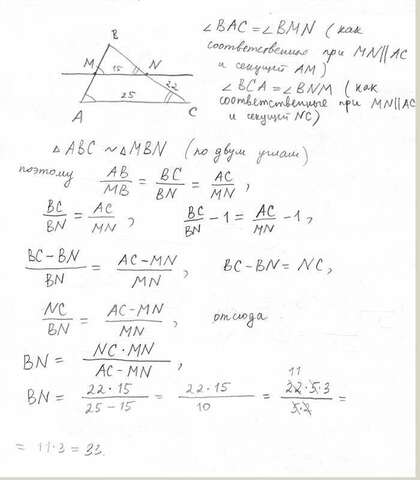 B
M 15 N
22
25
A C
∠BAC = ∠BMN (как
соответственные при MN||AC
и секущей AM)
∠BCA = ∠BNM (как
соответственные при MN||AC
и секущей NC)
△ABC ~ △MBN (по двум углам)
поэтому AB/MB = BC/BN = AC/MN,
BC/BN = AC/MN, BC/BN - 1 = AC/MN - 1,
BC-BN/BN = AC-MN/MN, BC-BN = NC,
NC/BN = AC-MN/MN, отсюда
BN = NC·MN/AC-MN,
BN = 22·15/25-15 = 22·15/10 = 11 22·5·3/5·2 =
= 11·3 = 33.